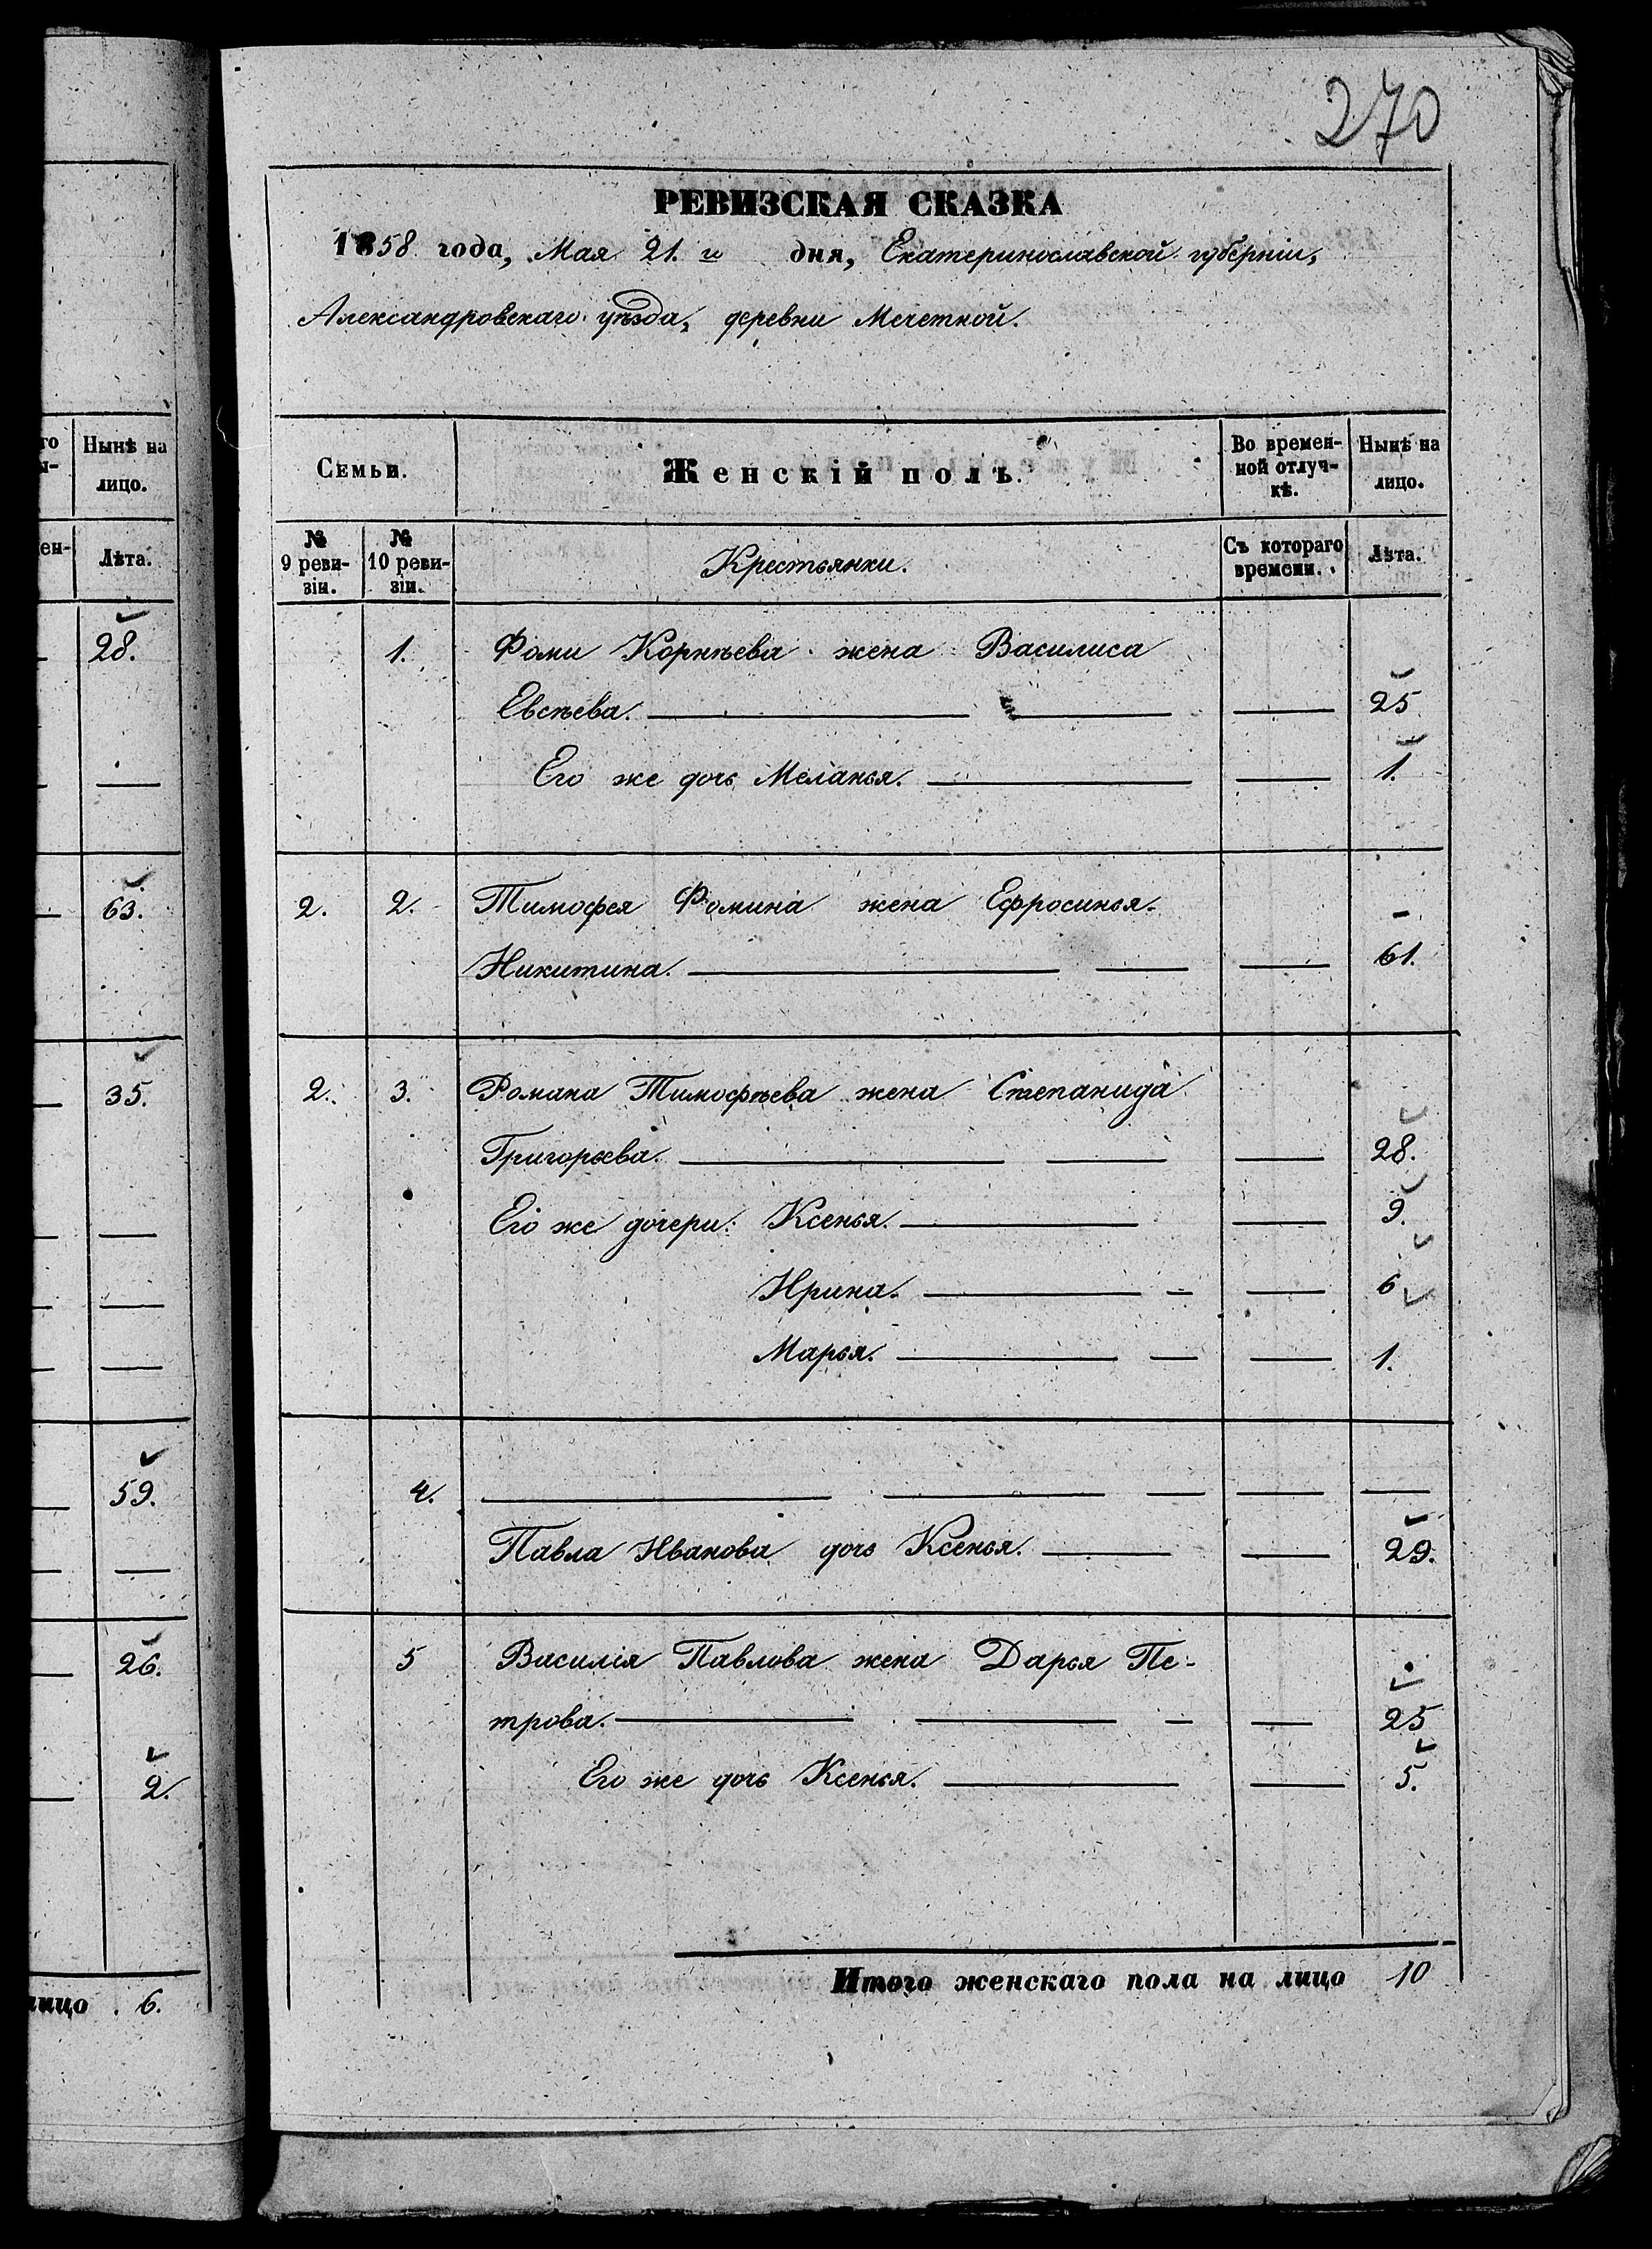 270
РЕВИЗСКАЯ СКАЗКА
1858 года, Мая 21. го дня, Екатеринославской губерніи,
Александровскаго уѣзда, деревни Мечетной.
го Ныиѣ на
лицо.
ен- Лѣта.
28.
63.
35.
59.
26.
2.
лицо 6.
Семьи. Женскій полъ. Во времен-
ной отлуч-
кѣ. Нынѣ на
лицо.
№
9 реви-
зіи. №
10 реви-
зіи. Крестьянки. Съ котораго
времени. Лѣта.
1. Фомы Корнѣева жена Василиса
Евсѣева. 25
Его же дочь Меланья. 1.
2. 2. Тимофея Фомина жена Ефросинья
Никитина. 61.
2. 3. Романа Тимофѣева жена Степанида
Григорьева. 28.
Его же дочери: Ксенья. 9.
Ирина. 6
Марья. 1.
4.
Павла Иванова дочь Ксенья. 29.
5 Василія Павлова жена Дарья Пе-
трова. 25
Его же дочь Ксенья. 5.
Итого женскаго пола на лицо 10